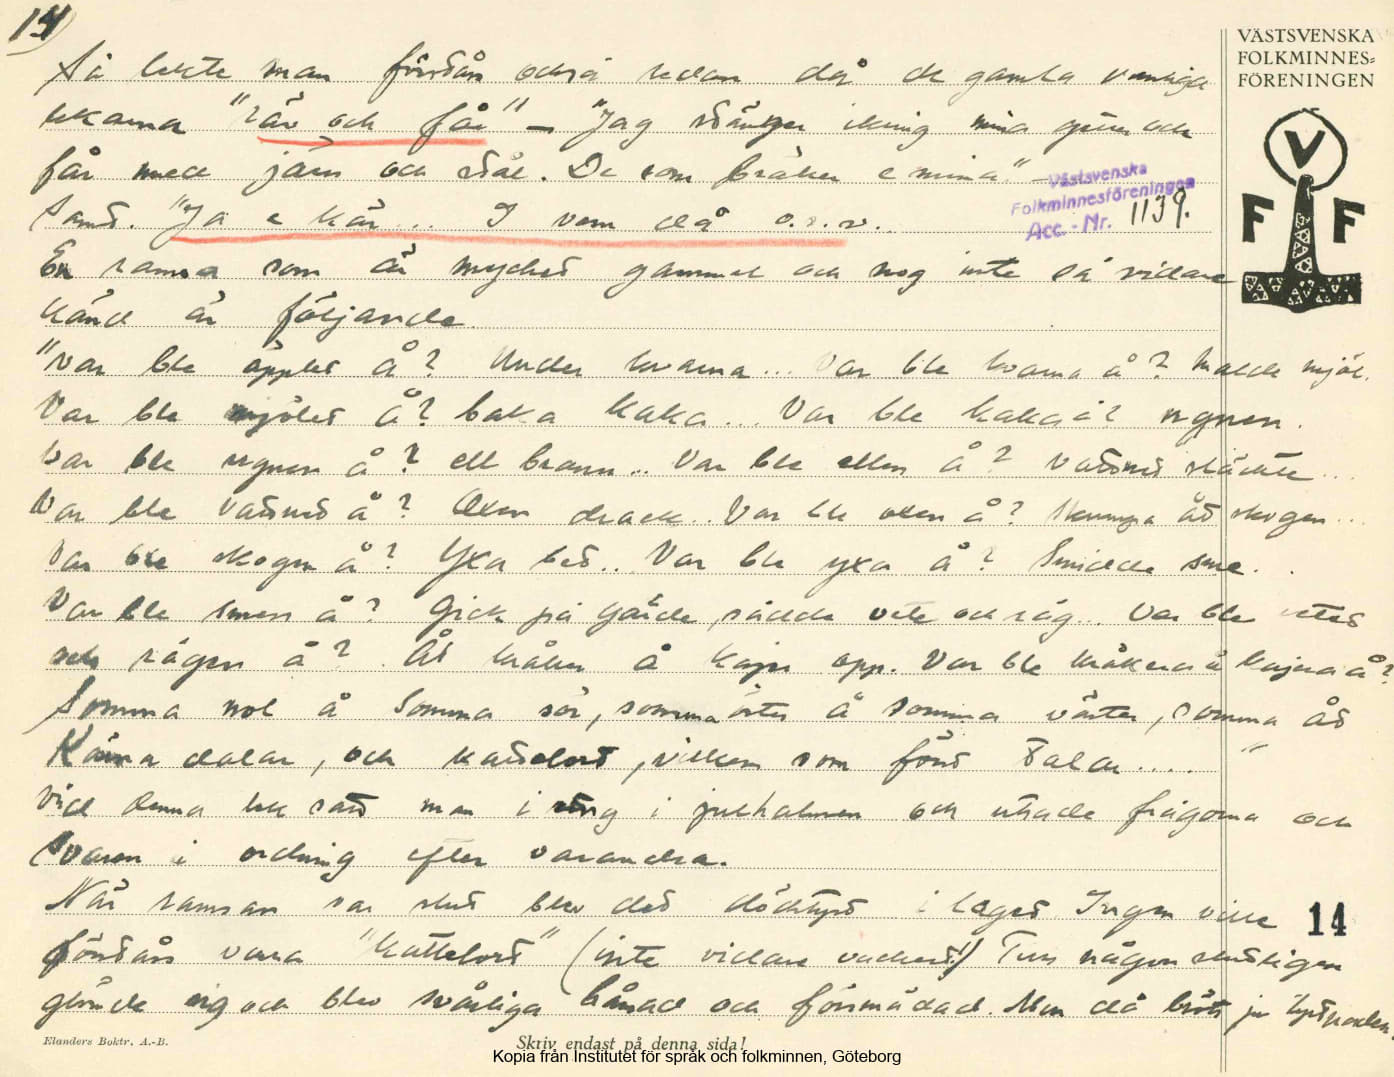 14
VÄSTSVENSKA
FOLKMINNES=
FÖRENINGEN
V
F F
Så lekte man förstås också sedan då de gamla vanliga
lekarna "räv och får" — "Jag stänger ikring mina getter och
får med järn och stål. De som bräker e mina" —
Västsvenska
Folkminnesföreningen
Acc.-Nr. 1139.
Samt. "Ja e kär... I vem då o.s.v.
En ramsa som är mycket gammal och nog inte så vidare
känd är följande
"Var ble äpplet å? Under kvarna... Var ble kvarna å? Malde mjöl.
Var ble mjölet å? baka kaka... Var ble kaka å? ugnen.
Var ble ugnen å? ell brann.. Var ble ellen å? Vattnet släckte...
Var ble vattnet å? Oxen drack.. Var ble oxen å? åt skogen...
Var ble skogen å? Yxa bet.. Var ble yxa å? Smidde sme..
Var ble smen å? Gick på gärde, sådde vete och råg... Var ble vetet
och rågen å? Åt kråker å kajer opp. Var ble kråkera å kajera å?
Somma nol å somma sör, somma öster å somma väster, somma åt
Kärna dalar, och kattelort, vilken som först talar....."
Vid denna lek satt man i ring i julhalmen och utsade frågorna och
svaren i ordning efter varandra.
När ramsan var slut blev det dödstyst i laget. Ingen ville
förstås vara "Kattelort" (inte vidare vackert!) Tills någon slutligen
glömde sig och blev svårliga hånad och försmädad. Men då bröts ju tystnaden.
14
Elanders Boktr. A.-B.
Skriv endast på denna sida!
Kopia från Institutet för språk och folkminnen, Göteborg